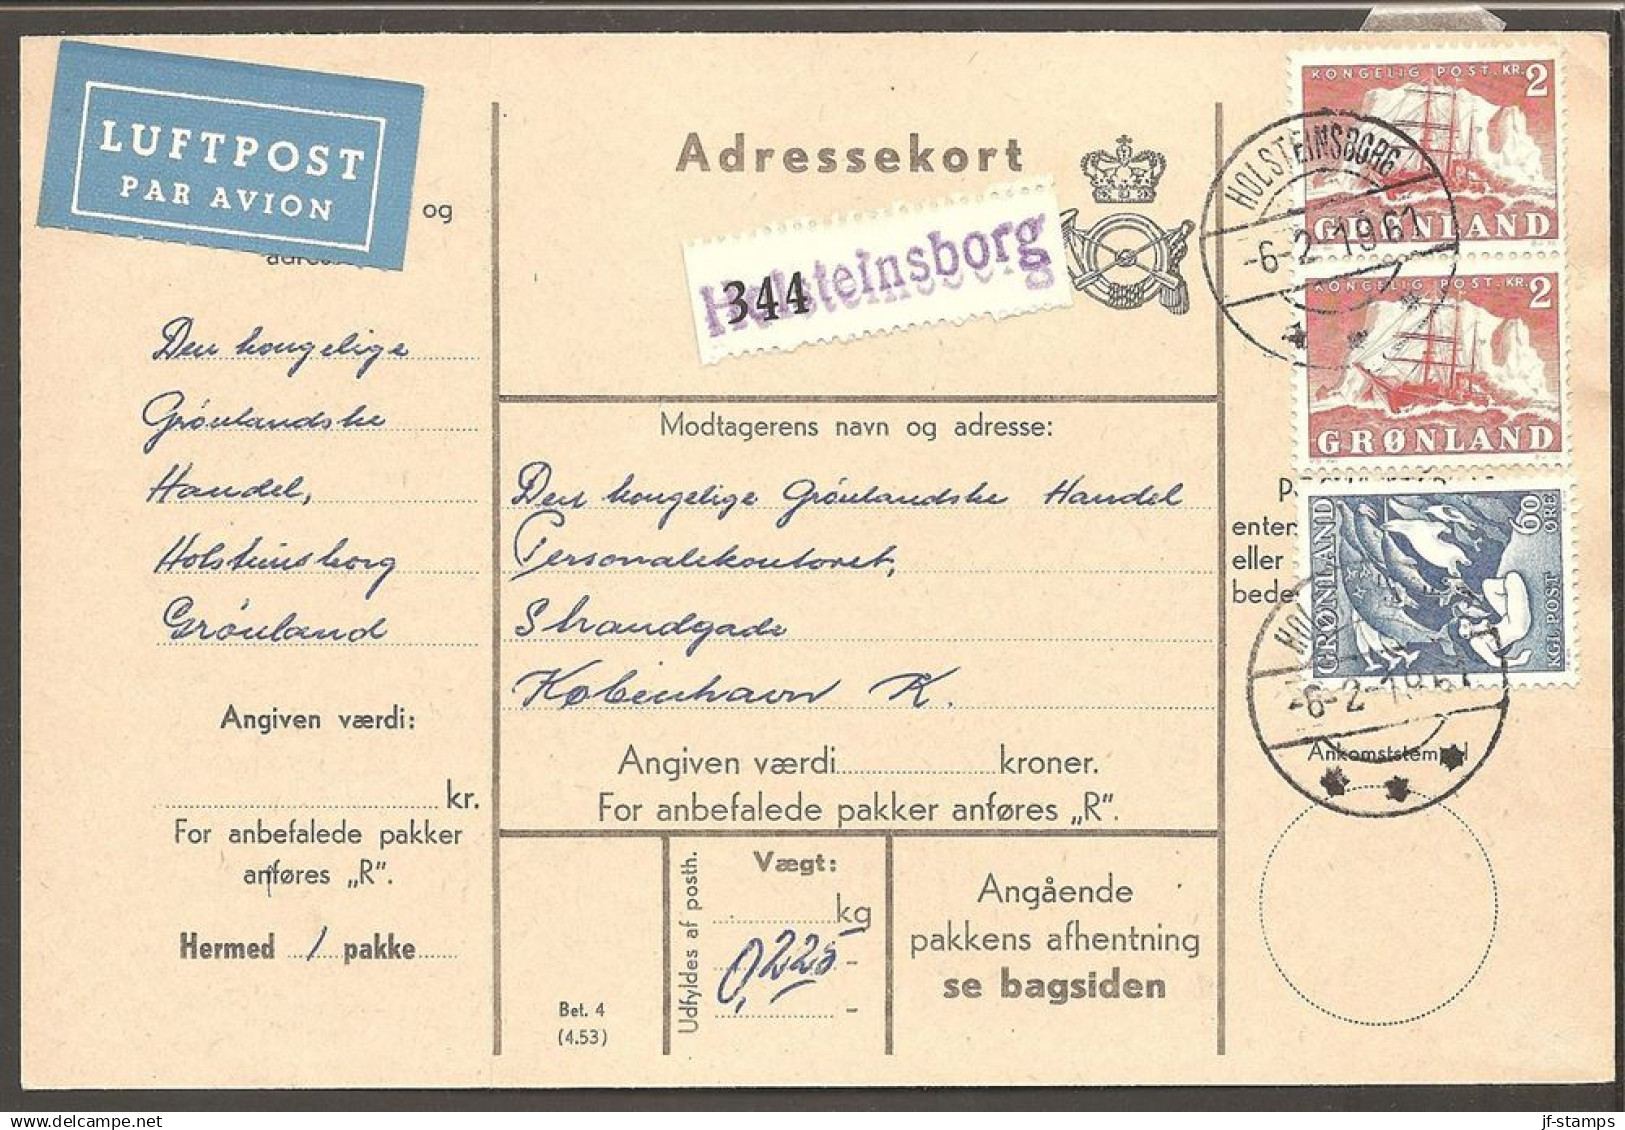 LUFTPOST
PAR AVION
og
Den kongelige
Grönlandske
Handel,
Holsteinsborg
Grönland
Angiven værdi:
kr.
For anbefalede pakker
anføres „R”.
Hermed 1 pakke
Adressekort
344
Holsteinsborg
Modtagerens navn og adresse:
Den kongelige Grönlandske Handel
Personalekontoret,
Strandgade
København K.
Angiven værdi kroner.
For anbefalede pakker anføres „R”.
Bet. 4
(4.53)
Udfyldes af posth.
Vægt:
kg
0,225
Angående
pakkens afhentning
se bagsiden
KONGELIG POST. KR. 2
GRØNLAND
HOLSTEINSBORG
-6-2-1961
KONGELIG POST. KR. 2
GRØNLAND
enter
eller
bede
GRØNLAND
60 ØRE
KGL POST
-6-2-1961
Ankomststempel
jf-stamps